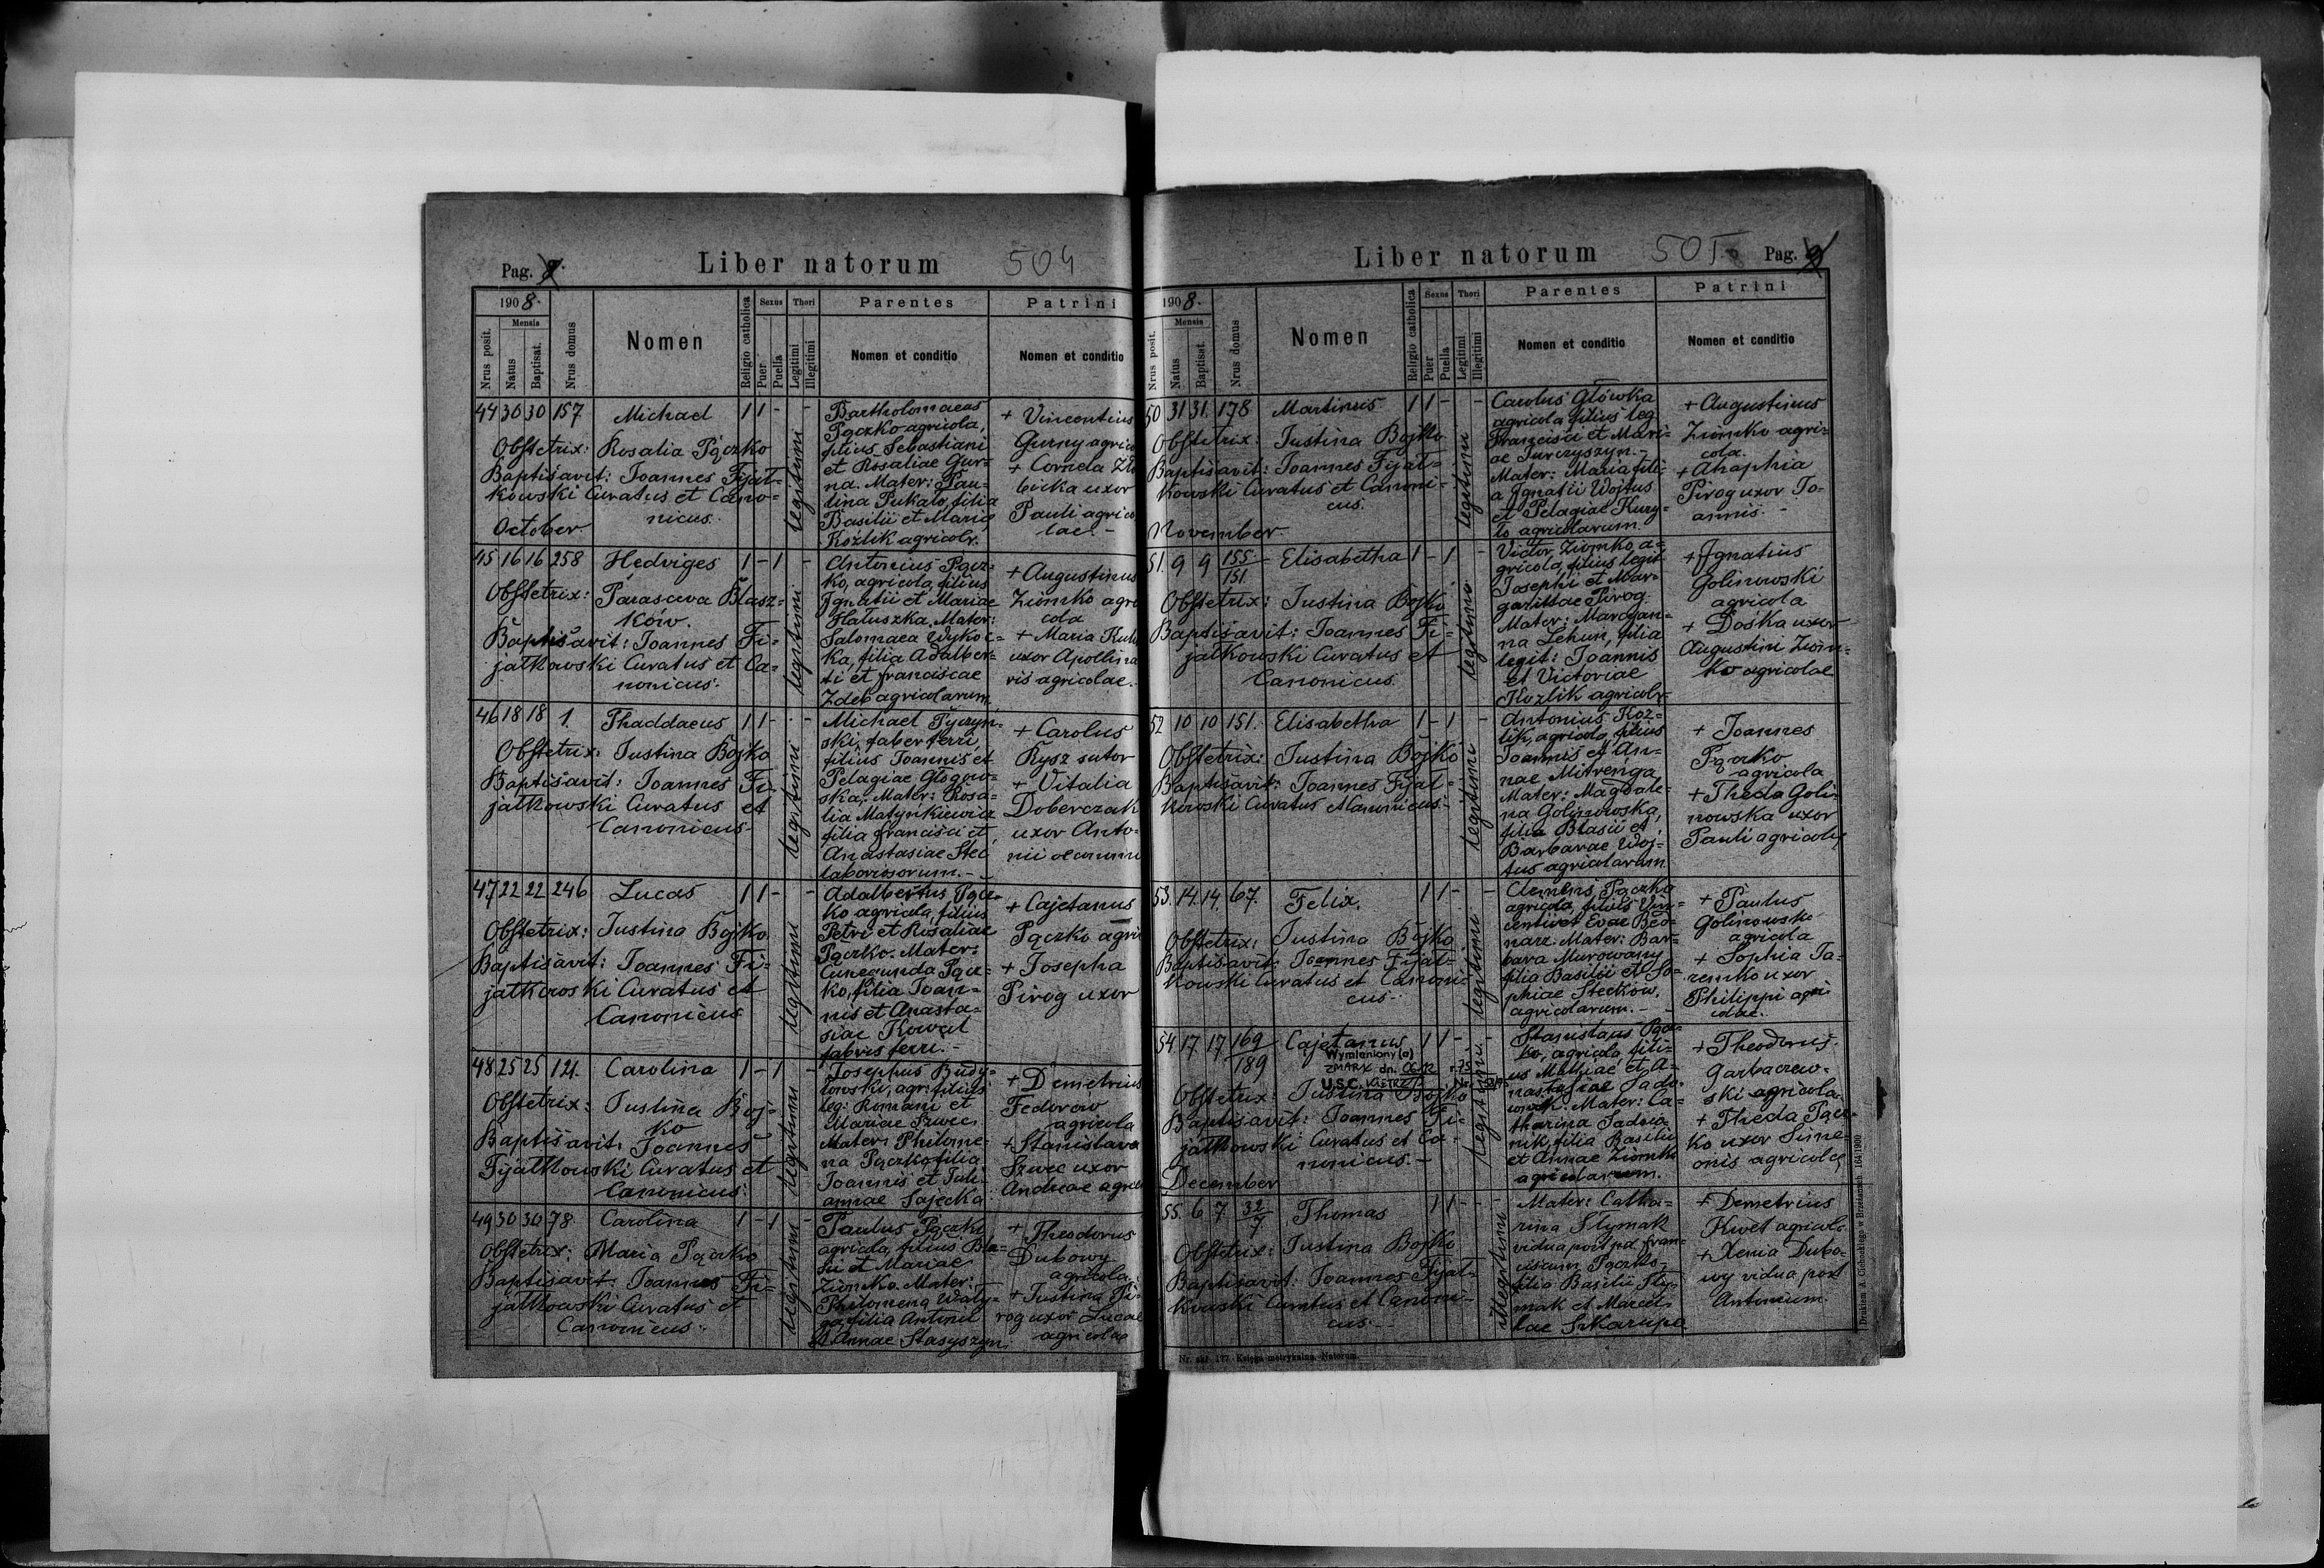 Pag. 8.
Liber natorum
504
1908.
Mensis
Nrus posit.
Natus
Baptisat.
Nrus domus
Nomen
Religio catholica
Sexus
Puer
Puella
Thori
Legitimi
Illegitimi
Parentes
Nomen et conditio
Patrini
Nomen et conditio
44 30 30 157 Michael 1 1 - -
Obstetrix: Rosalia Pączko
Baptisavit: Joannes Fijał=
kowski Curatus et Cano=
nicus.
legitimi
Bartholomaeus
Pączko agricola,
filius Sebastiani
et Rosaliae Gur=
na. Mater: Pau=
lina Pukało, filia
Basilii et Mariae
Koźlik agricolr.
+ Vincentius
Gurny agrico
+ Cornela
bicka uxor
Pauli agrico
lae. -
October
45 16 16 258 Hedviges 1 - 1 -
Obstetrix: Parasceva Błasz=
ków.
Baptisavit: Joannes Fi=
jałkowski Curatus et Ca=
nonicus.
legitimi
Antonius Pącz=
ko, agricola, filius
Ignatii et Mariae
Hałuszka. Mater:
Salomaea Wykoc=
ka, filia Adalber=
ti et Franciscae
Zdeb agricolarum.
+ Augustinus
Ziomko agri
cola
+ Maria
uxor Apollina
ris agricolae.
46 18 18 1. Thaddaeus 1 1 - -
Obstetrix: Justina Bojko
Baptisavit: Joannes Fi=
jałkowski Curatus et
Canonicus
legitimi
Michael Tyczyń=
ski, faber ferri,
filius Joannis et
Pelagiae Głogow=
ska. Mater: Rosa=
lia Matynkiewicz
filia Francisci et
Anastasiae Stec
laboriosorum. -
+ Carolus
Rysz sutor
+ Vitalia
Doberczak
uxor Anto=
nii
47 22 22 246 Lucas 1 1 - -
Obstetrix: Justina Bojko
Baptisavit: Joannes Fi=
jałkowski Curatus et
Canonicus
legitimi
Adalbertus Pącz=
ko agricola, filius
Petri et Rosaliae
Pączko. Mater:
Cunegunda Pącz=
ko, filia Joan=
nis et Anasta=
siae Kowal
fabris ferri. -
+ Cajetanus
Pączko agri
+ Josepha
Pirog uxor
48 25 25 121. Carolina 1 - 1 -
Obstetrix: Justina Boj=
ko
Baptisavit: Joannes
Fijałkowski Curatus et
Canonicus.
legitimi
Josephus Budy=
łowski, agr: filius
leg: Romani et
Mariae Szwec
Mater: Philome=
na Pączko filia
Joannis et Juli=
annae Sajecka
+ Demetrius
Fedorow
agricola
+ Stanislava
Szwec uxor
Andreae agric
49 30 30 78. Carolina 1 - 1 -
Obstetrix: Maria Pączko
Baptisavit: Joannes Fi=
jałkowski Curatus et
Canonicus.
legitimi
Paulus Pączko
agricola, filius Bla=
sii et Mariae
Ziomko. Mater:
Philomena Waty=
ga, filia Antonii
et Annae Stasyszyn.
+ Theodorus
Dubowy
agricola
+ Justina Pi=
rog uxor Lucae
agricolae
Liber natorum
505
Pag. 9
1908.
Mensis
Nrus posit.
Natus
Baptisat.
Nrus domus
Nomen
Religio catholica
Sexus
Puer
Puella
Thori
Legitimi
Illegitimi
Parentes
Nomen et conditio
Patrini
Nomen et conditio
50 31 31. 178 Martinus 1 1 - -
Obstetrix: Justina Bojko
Baptisavit: Joannes Fijał=
kowski Curatus et Canoni=
cus.
legitimi
Carolus Główka
agricola filius leg
Francisci et Mari=
ae Jurczyszyn. -
Mater: Maria fili=
a Ignatii Wojtus
et Pelagiae Kury=
ło agricolarum.
+ Augustinus
Ziomko agri=
cola.
+ Ahaphia
Pirog uxor Jo=
annis. -
November
51. 9 9 155/151. Elisabetha 1 - 1 -
Obstetrix: Justina Bojko
Baptisavit: Joannes Fi=
jałkowski Curatus et
Canonicus.
legitimi
Victor Ziomko, a=
gricola, filius legit
Josephi et Mar=
garittae Pirog.
Mater: Marojan=
na Lehun, filia
legit: Joannis
et Victoriae
Kozlik agricolr.
+ Ignatius
Golinowski
agricola
+ Doska uxor
Augustini Ziom=
ko agricolae
52 10 10 151. Elisabetha 1 - 1 -
Obstetrix: Justina Bojko
Baptisavit: Joannes Fijał=
kowski Curatus et Canonicus. -
legitimi
Antonius Koz=
lik, agricola, filius
Joannis et An=
nae Mitrenga,
Mater: Magdale=
na Golinowska,
filia Blasii et
Barbarae Woj=
tus agricolarum
+ Joannes
Pączko
agricola
+ Theda Goli=
nowska uxor
Pauli agricolae
53. 14. 14. 67. Felix. 1 1 - -
Obstetrix: Justina Bojko
Baptisavit: Joannes Fijał=
kowski Curatus et Canoni=
cus.
legitimi
Clemens Pączko
agricola, filius Vin=
centii et Evae Bed=
narz. Mater: Bar=
bara Murowany
filia Basilii et So=
phiae Steckow,
agricolarum. -
+ Paulus
Golinowski
agricola
+ Sophia Ja=
remko uxor
Philippi agri=
colae.
54. 17. 17 169/189 Cajetanus 1 1 - -
Wymieniony (a)
ZMARŁ dn. r. 75
U.S.C. Nr.
Obstetrix: Justina Bojko
Baptisavit: Joannes Fi=
jałkowski Curatus et Ca=
nonicus. -
legitimi
Stanislaus Pącz=
ko, agricola, fili=
us Mathiae et A=
nastasiae Sado=
wnik. Mater: Ca=
tharina Sadow=
nik, filia Basilii
et Annae Ziomko
agricolarum.
+ Theodorus
Garbaczew=
ski agricola
+ Theda Pącz=
ko uxor Sime=
onis agricolae
December
55. 6 7 32/7 Thomas 1 1 - -
Obstetrix: Justina Bojko
Baptisavit: Joannes Fijał=
kowski Curatus et Canoni=
cus. -
illegitimi
Mater: Catha=
rina Slymak
vidua post pd. Fran=
ciscum Pączko,
filia Basilii Sly=
mak et Marcel=
lae Szkarupa
+ Demetrius
Hwet agricola
+ Xenia Dubo=
wy vidua post
Antonium.
Nr. skł. 177. Księga metrykalna. Natorum.
Drukiem A. Cichockiego w Brzeżanach. 164/1900